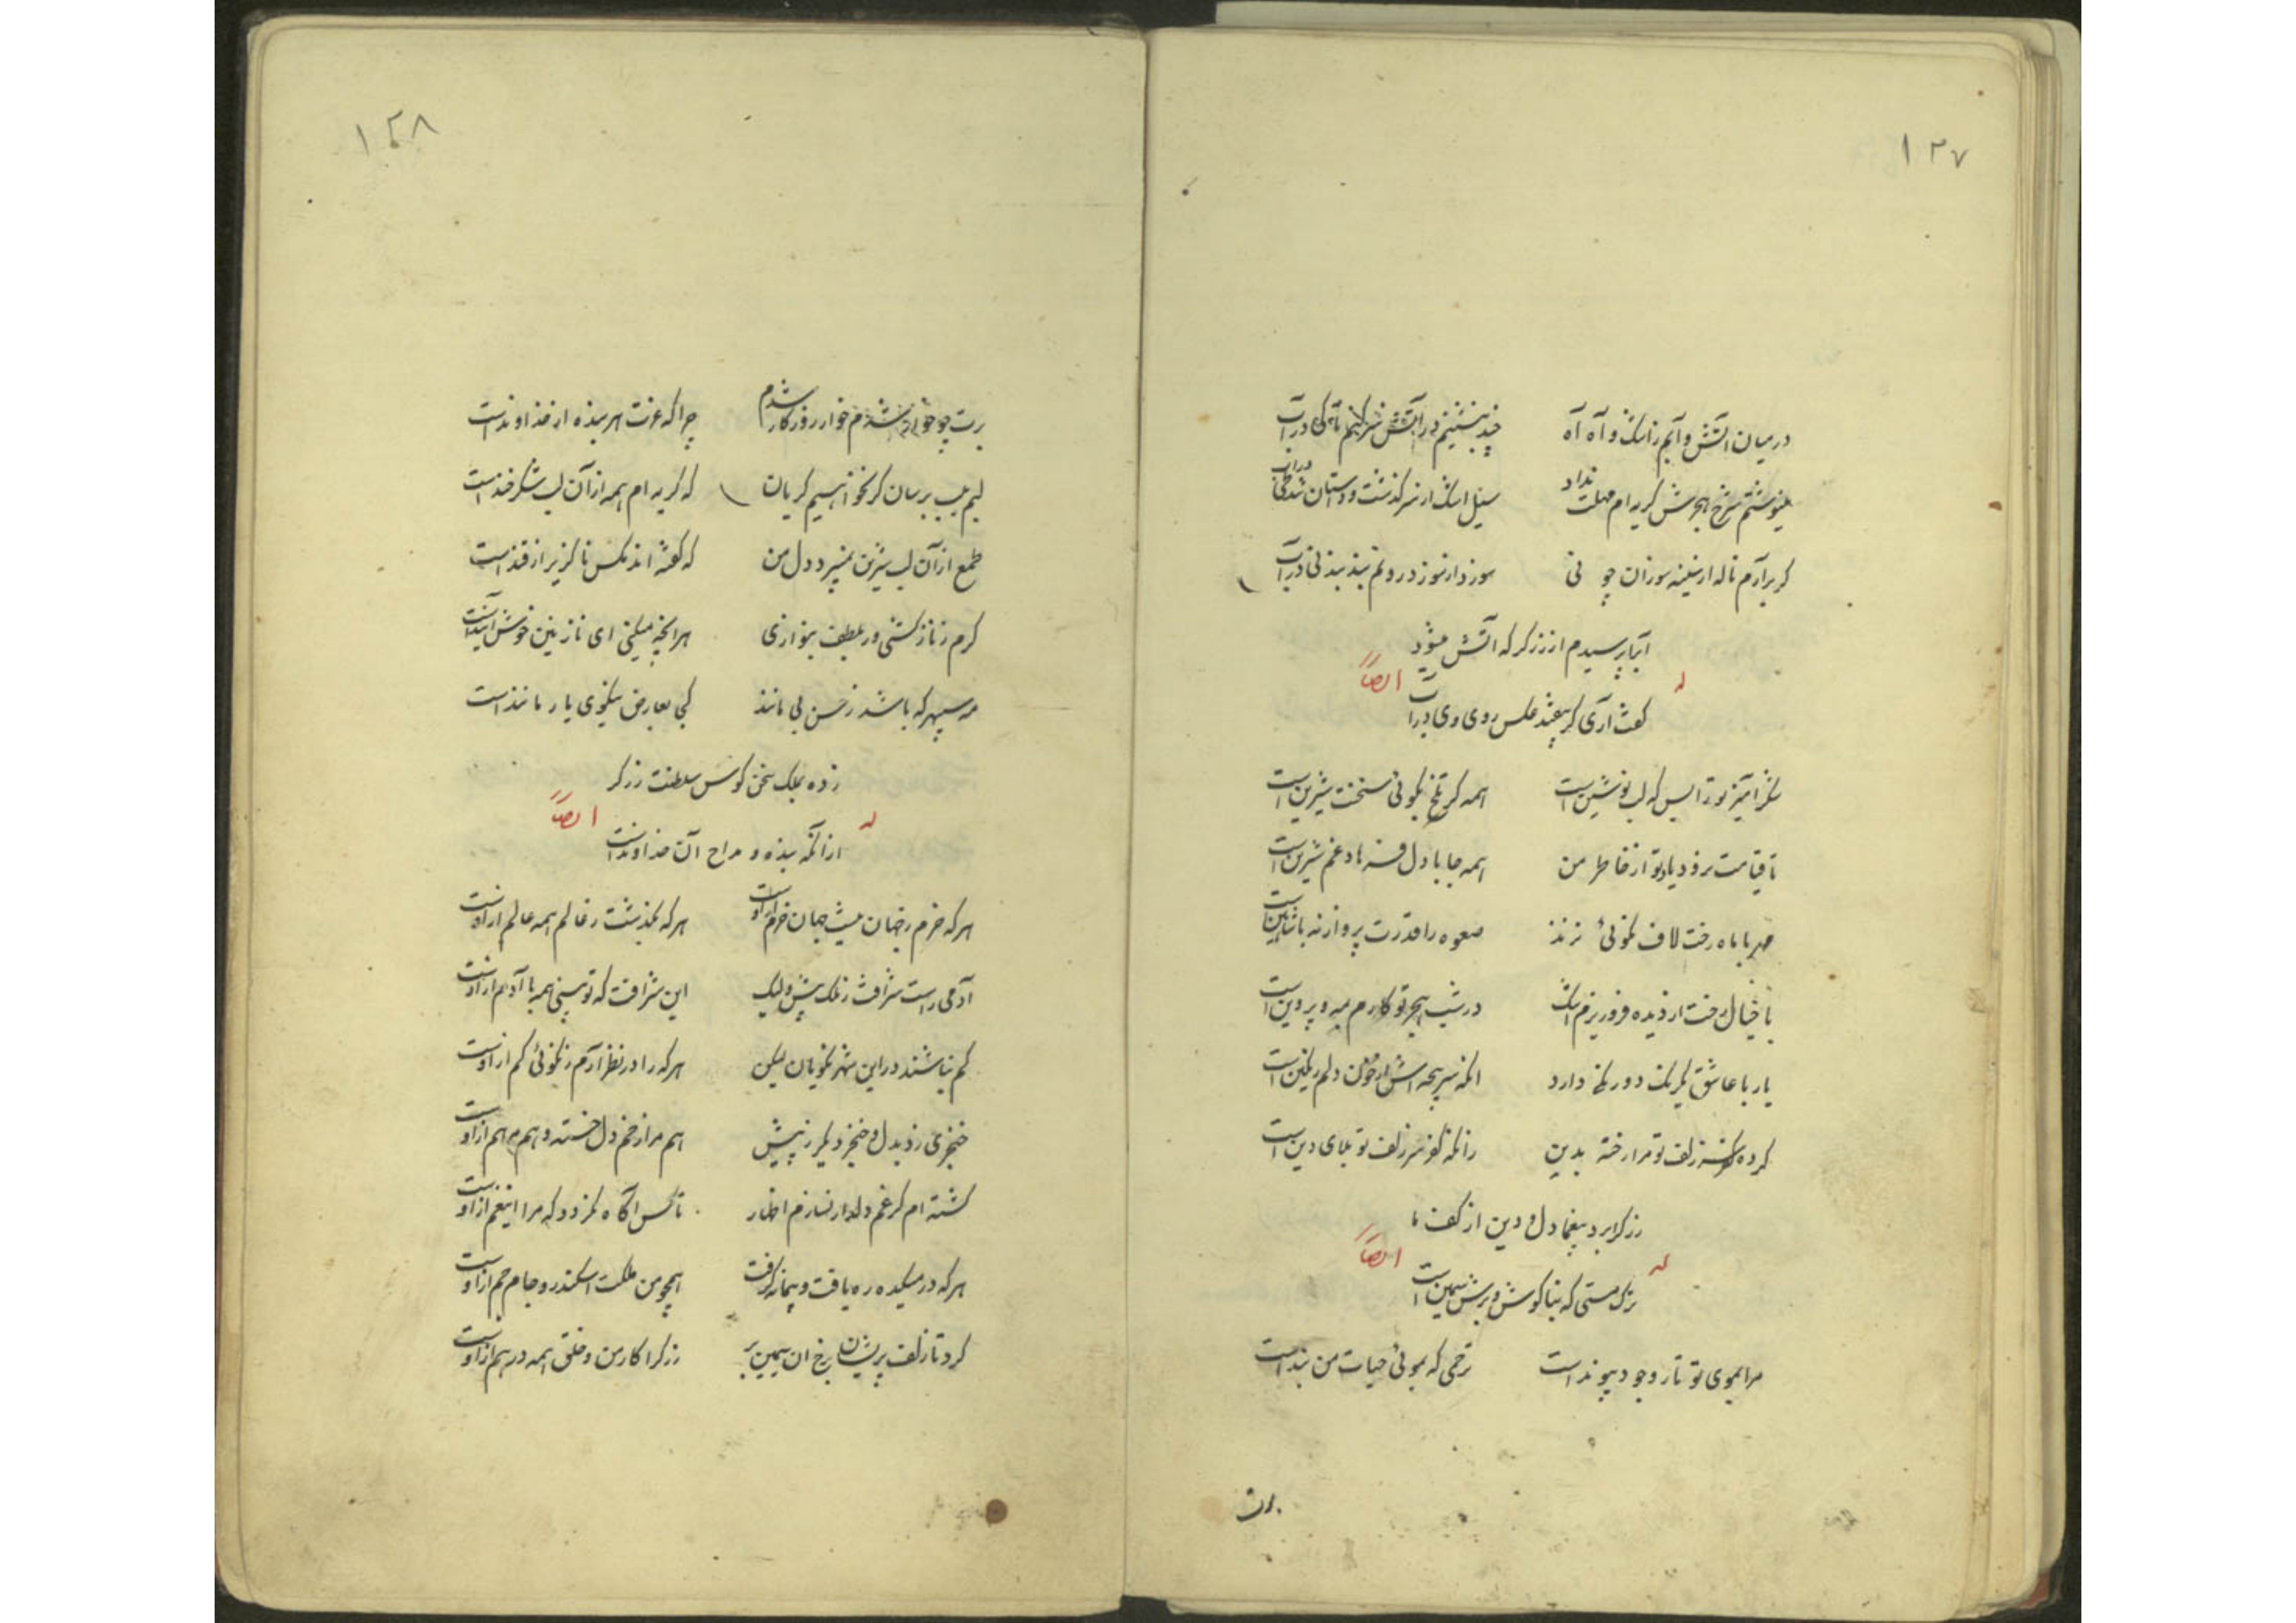 ۱۲۷
در میان آتش و آبم ز اشک و آه آه چند بنشینم در آتش سر کنم تا کی در آب
مینوشتم شرح هجرش گریه ام مهلت نداد سیل اشک از سر گذشت و دستان شد طی در آب
گر برآرم ناله از سینه سوزان چو نی سوز دارد سوز درونم بند بند نی در آب
آبیا پرسیدم از زرگر که آتش میشود
له ایضاً
گفت آری گر بیفتد عکس روی وی در آب
شکر آمیز تو را بس که لب نوشین است همه گر تلخ بگوئی سخنت شیرین است
تا قیامت نرود یاد تو از خاطر من همه جا با دل فرهاد غم شیرین است
مهر با ماه رخت لاف نکوئی نزند صعوه را قدرت پرواز نه با شاهین است
با خیال رخت از دیده فرو ریزم اشک در شب هجر تو کارم مه و پروین است
یار با عاشق یکرنگ دورنگی دارد آنکه سر پنجه اش از خون دلم رنگین است
کرده سر زلف تو مرا رخنه بدین زانکه کفر سر زلف تو بلای دین است
زرگرا برد بیغما دل و دین از کف ما
له ایضاً
ترک مستی که بناگوش و برش سیمین است
مرا بموی تو تار وجود پیوند است ترحمی که بموئی حیات من بند است
برت
۱۲۸
برت چو خوار شدم خوار روزگار شدم چرا که عزت هر بنده از خداوند است
لبم بلب برسان گر نخواهیم گریان که گریه ام همه از آن لب شکر خند است
طمع از آن لب شیرین نمیبرد دل من که گفته اند مگس ناگزیر از قند است
گرم ز ناز کشی ور بلطف بنوازی هر آنچه میکنی ای نازنین خوش آیند است
مه سپهر که باشد ز حسن بی مانند کی بعارض نیکوی یار مانند است
زده بملک سخن کوس سلطنت زرگر
له ایضاً
از آنکه بنده و مداح آن خداوند است
هر که خرم ز جهان نیست جهان خرم از اوست هر که بگذشت ز عالم همه عالم از اوست
آدمی راست شرافت ز ملک بیش ولیک این شرافت که تو بینی همه با آدم از اوست
کم نباشند در این شهر نکویان لیکن هر که را در نظر آرم ز نکوئی کم از اوست
خنجری زد بدل و خنجر دیگر ز پیش هم مرا زخم دل خسته و هم مرهم از اوست
کشته ام گر غم دلدار نسازم اظهار تا کس آگاه نگردد که مرا این غم از اوست
هر که در میکده ره یافت و پیمانه گرفت همچو من ملکت اسکندر و جام جم از اوست
کرد تا زلف پریشان برخ آن سیمین بر زرگرا کار من و خلق همه درهم از اوست